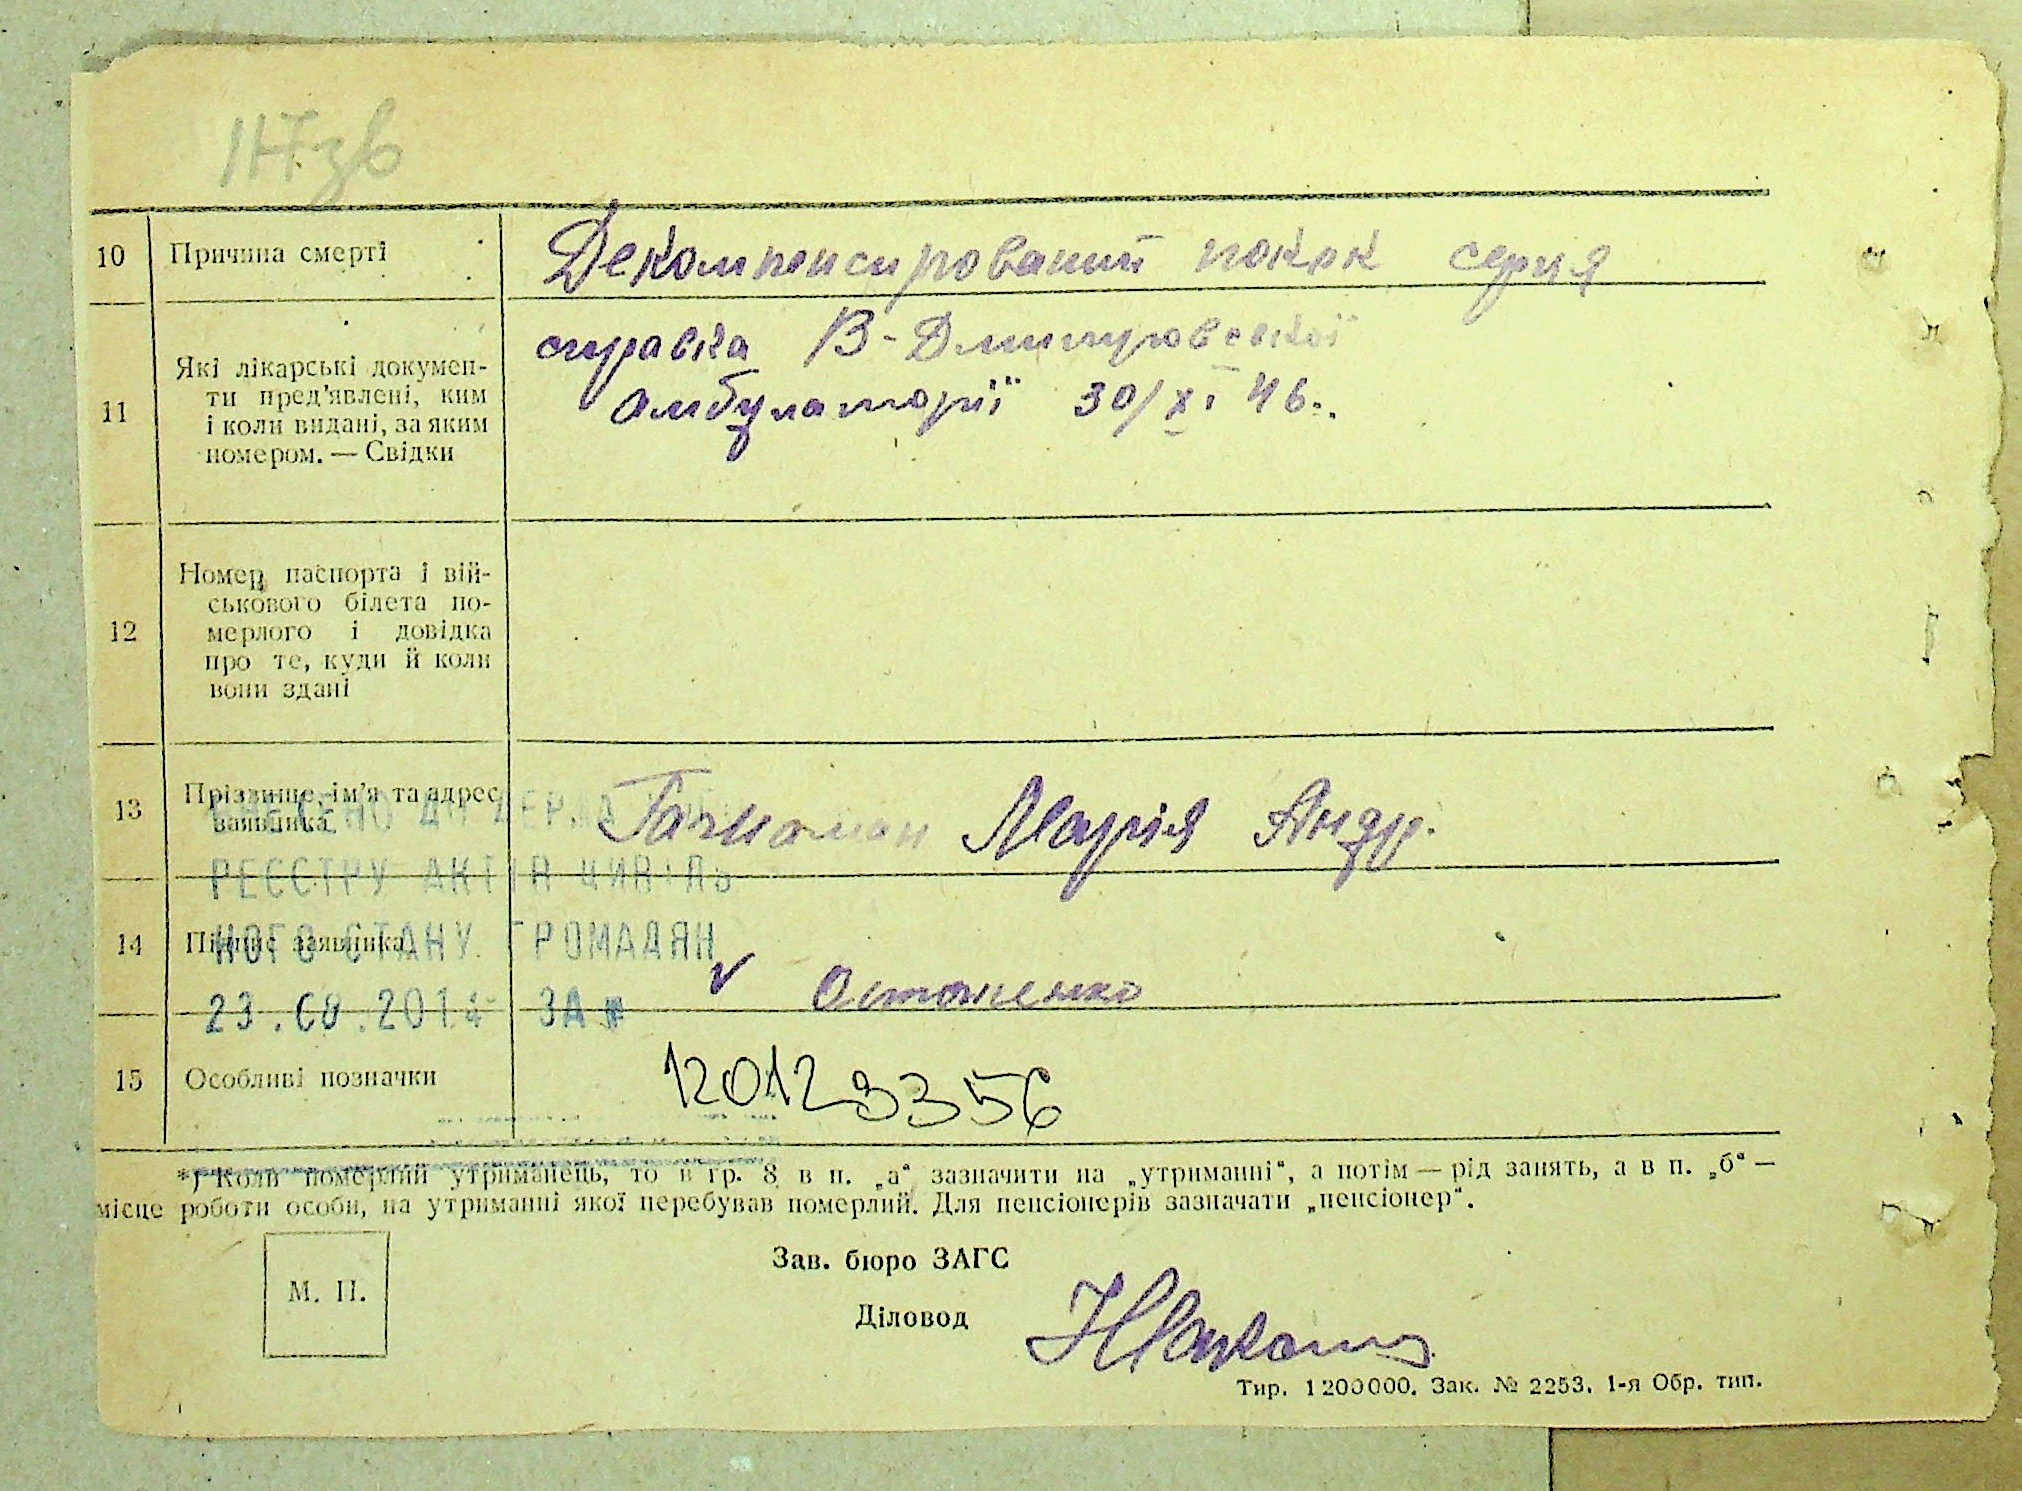 10 Причина смерті
Декомпенсирований покок серця
11 Які лікарські докумен-
ти пред'явлені, ким
і коли видані, за яким
номером. — Свідки
справка В-Дмитровської
амбулаторії 30/XI 46.
12 Номер паспорта і вій-
ськового білета по-
мерлого і довідка
про те, куди й коли
вони здані
13 Прізвище, ім'я та адрес
заявника
Марія Андр.
РЕЄСТРУ АКТІВ ЦИВІЛЬ
14 Підпис заявника
НОГО СТАНУ ГРОМАДЯН
23.08.2014 ЗА №
15 Особливі позначки
12012 3356
*) Коли померлий утриманець, то в гр. 8 в п. „а“ зазначити на „утриманні“, а потім — рід занять, а в п. „б“ —
місце роботи особи, на утриманні якої перебував померлий. Для пенсіонерів зазначати „пенсіонер“.
Зав. бюро ЗАГС
М. П.
Діловод
Тир. 1200000. Зак. № 2253. 1-я Обр. тип.